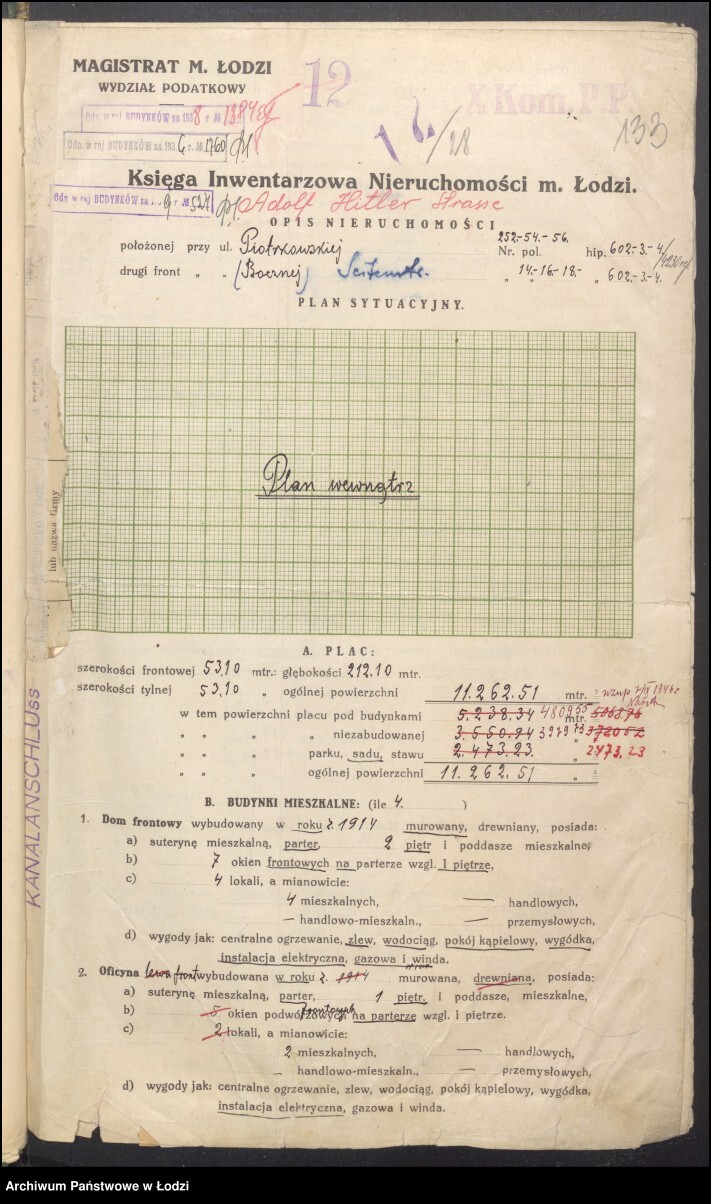 MAGISTRAT M. ŁODZI
WYDZIAŁ PODATKOWY
12
X Kom. P.P.
Odn. w rej BUDYNKÓW za 1938 r. №
Odn. w rej BUDYNKÓW za 1936 r. № 1760
/28
133
Księga Inwentarzowa Nieruchomości m. Łodzi.
Odn w rej BUDYNKÓW za 9 r № 521
Adolf Hitler Strasse
OPIS NIERUCHOMOŚCI
położonej przy ul. Piotrkowskiej Nr. pol. 252.-54.-56. hip. 602.-3.-4/4230
drugi front „ „ (Bocznej) Seitenstr. „ „ 14.-16.-18.- „ 602.-3.-4.
PLAN SYTUACYJNY.
Plan wewnątrz
lub nazwa firmy
KANALANSCHLUss
A. PLAC:
szerokości frontowej 53,10 mtr.: głębokości 212.10 mtr.
szerokości tylnej 53,10 „ ogólnej powierzchni 11.262.51 mtr.
w tem powierzchni placu pod budynkami 5.238.34 4809 mtr.
„ „ „ „ niezabudowanej 3.550.94 3979 „
„ „ „ parku, sadu, stawu 2.473.23 „ 2473.23
„ „ „ ogólnej powierzchni 11.262.51 „
B. BUDYNKI MIESZKALNE: (ile 4. )
1. Dom frontowy wybudowany w roku r. 1914 murowany, drewniany, posiada:
a) suterynę mieszkalną, parter, 2 piętr i poddasze mieszkalne,
b) 7 okien frontowych na parterze wzgl. I piętrze,
c) 4 lokali, a mianowicie:
4 mieszkalnych, — handlowych,
— handlowo-mieszkaln., — przemysłowych,
d) wygody jak: centralne ogrzewanie, zlew, wodociąg, pokój kąpielowy, wygódka,
instalacja elektryczna, gazowa i winda.
2. Oficyna lewa front wybudowana w roku r. 1914 murowana, drewniana, posiada:
a) suterynę mieszkalną, parter, 1 piętr. i poddasze, mieszkalne,
b) 5 okien podwórzowych frontowych na parterze wzgl. i piętrze.
c) 2 lokali, a mianowicie:
2 mieszkalnych, — handlowych,
– handlowo-mieszkaln., — przemysłowych,
d) wygody jak: centralne ogrzewanie, zlew, wodociąg, pokój kąpielowy, wygódka,
instalacja elektryczna, gazowa i winda.
Archiwum Państwowe w Łodzi